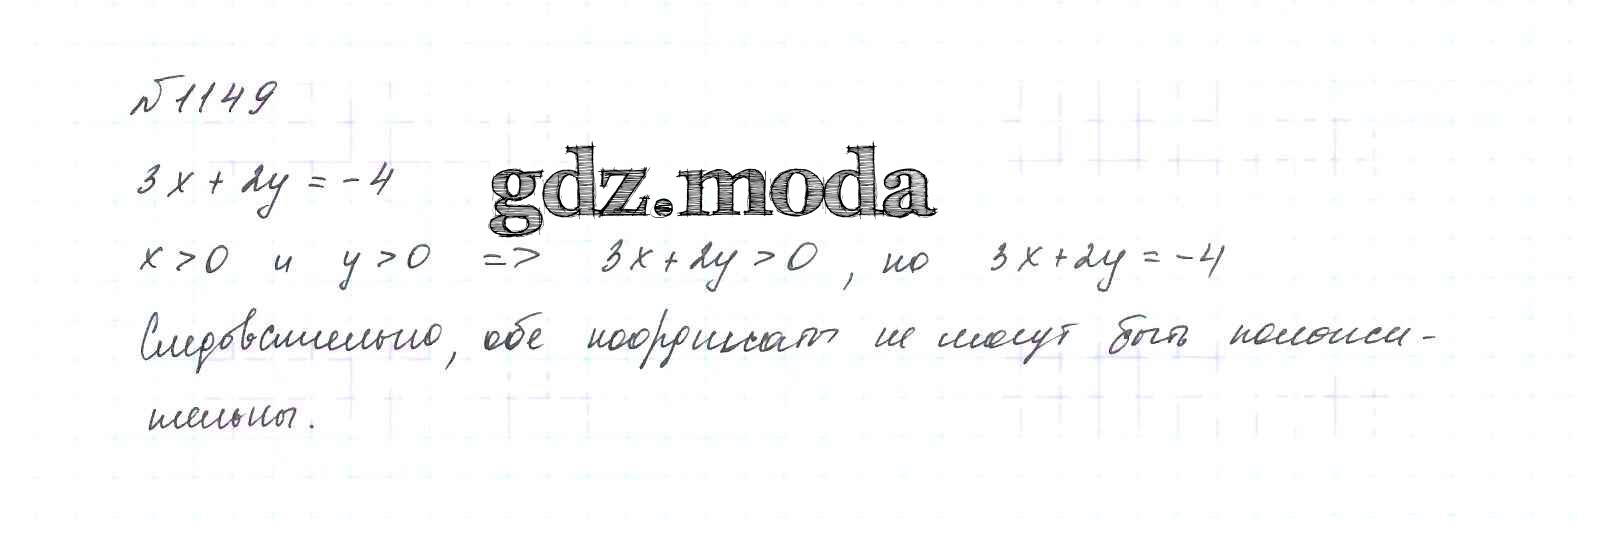 №1149
3x + 2y = -4
gdz.moda
x > 0 и y > 0 => 3x + 2y > 0, но 3x + 2y = -4
Следовательно, обе координаты не могут быть положи-
тельны.